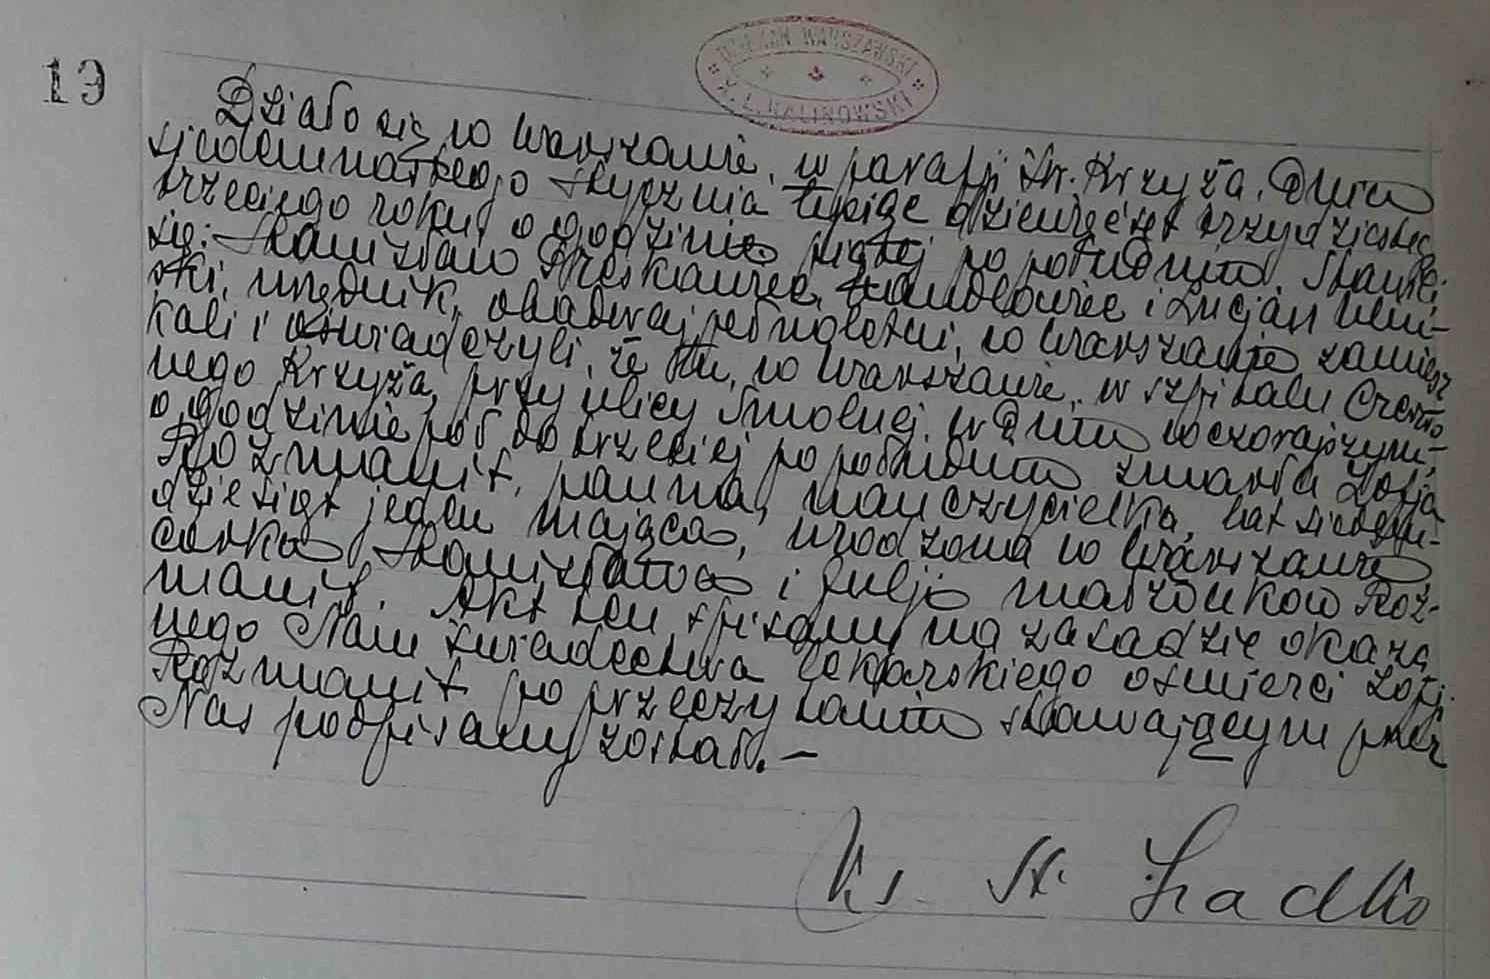 19
DZIEKAN WARSZAWSKI
X. L. KALINOWSKI
Działo się w Warszawie, w parafji Św. Krzyża, Dnia
siedemnastego stycznia tysiąc dziewięćset trzydziestego
trzeciego roku, o godzinie piątej po południu. Stawili
się: Stanisław i Lucjan
ski, urzędnik, obadwaj pełnoletni, w Warszawie zamiesz
kali i oświadczyli, że tu, w Warszawie, w szpitalu Czerwo
nego Krzyża, przy ulicy Smolnej, w Dniu wczorajszym,
o godzinie pół do trzeciej po południu zmarła Zofja
Rozmanit, panna, nauczycielka, lat siedem-
dziesiąt jeden mająca, urodzona w Warszawie,
córka Stanisława i Julji małżonków Roz-
manit. Akt ten spisany na zasadzie okaza
nego Nam świadectwa lekarskiego o śmierci Zofji
Rozmanit po przeczytaniu stawającym przez
Nas podpisany został. —
Ks. St.